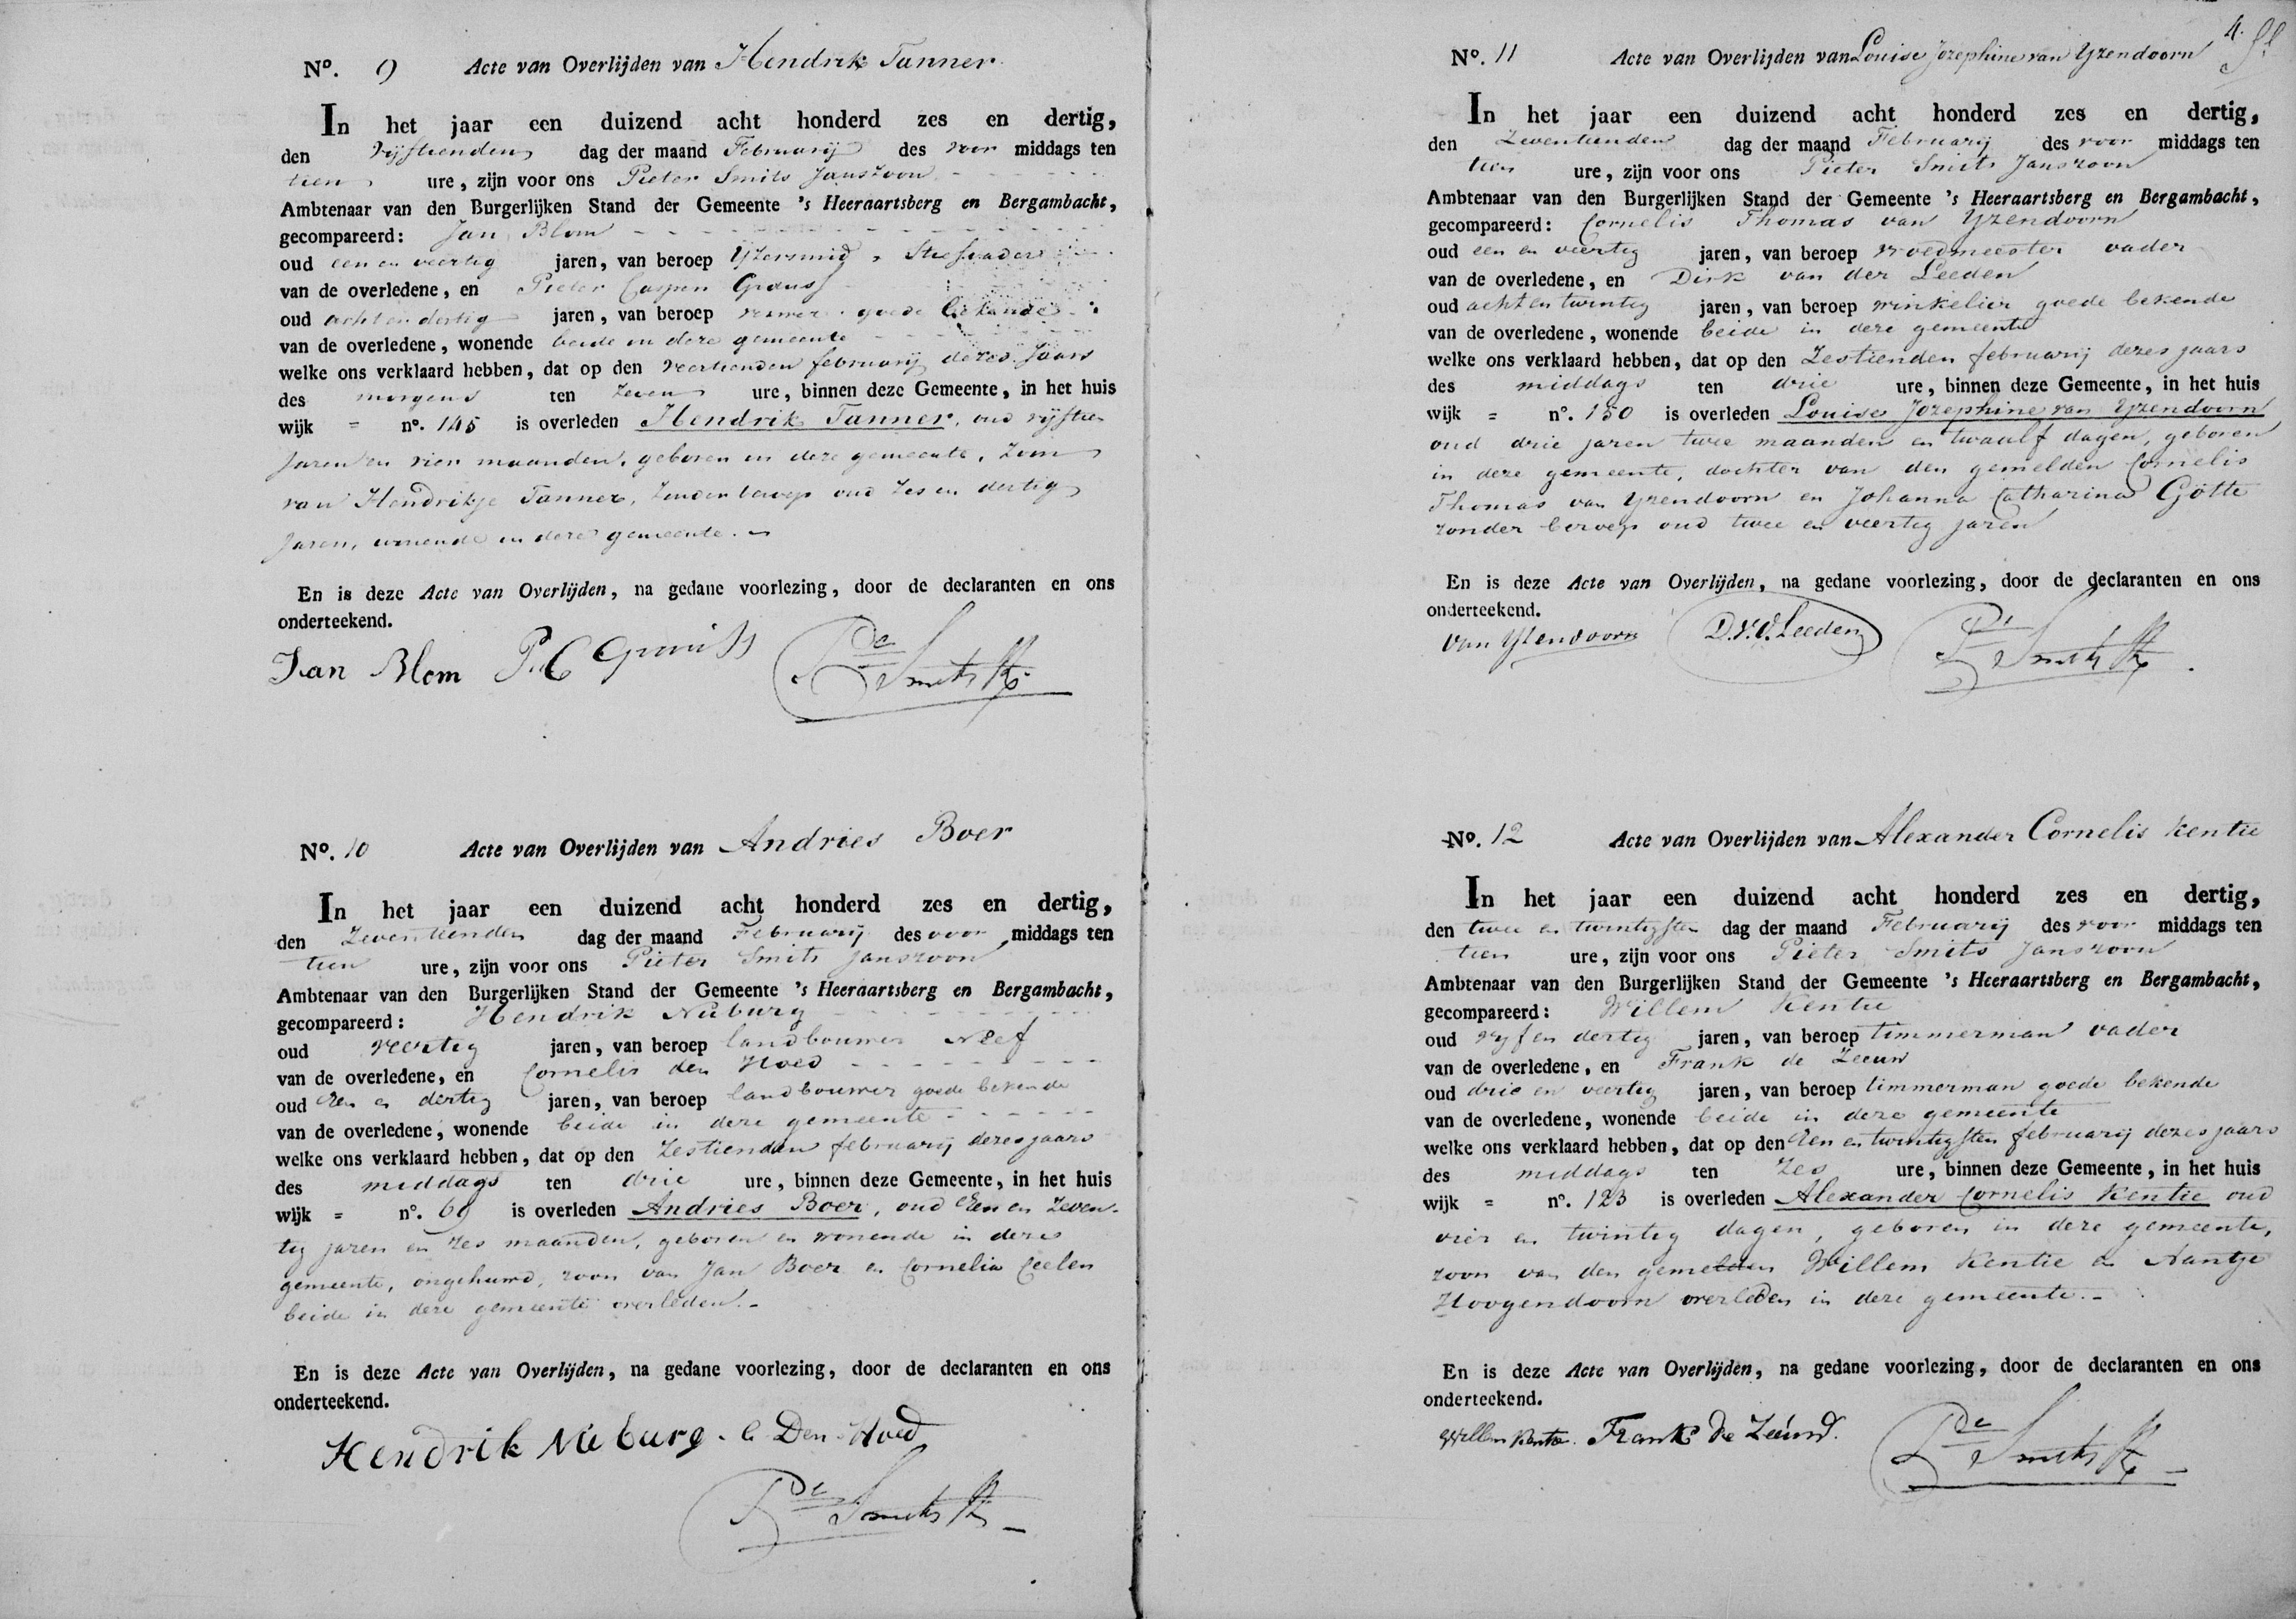 No. 9 Acte van Overlijden van Hendrik Tanner
In het jaar een duizend acht honderd zes en dertig,
den vijftienden dag der maand Februarij des voor middags ten
tien ure, zijn voor ons Pieter Smits Janszoon
Ambtenaar van den Burgerlijken Stand der Gemeente 's Heeraartsberg en Bergambacht,
gecompareerd: Jan Blom
oud een en veertig jaren, van beroep Yzersmid, Stiefvader
van de overledene, en Pieter Casper
oud acht en dertig jaren, van beroep goede bekende
van de overledene, wonende beide in deze gemeente
welke ons verklaard hebben, dat op den veertienden februarij dezes Jaars
des morgens ten zeven ure, binnen deze Gemeente, in het huis
wijk = no. 145 is overleden Hendrik Tanner, oud vijftien
Jaren en vier maanden, geboren in deze gemeente, Zoon
van Hendrikje Tanner, Zonder beroep oud Zes en dertig
Jaren, wonende in deze gemeente.
En is deze Acte van Overlijden, na gedane voorlezing, door de declaranten en ons
onderteekend.
Jan Blom P. C. Pr Smits Jz
No. 10 Acte van Overlijden van Andries Boer
In het jaar een duizend acht honderd zes en dertig,
den Zeventienden dag der maand Februarij des voor middags ten
tien ure, zijn voor ons Pieter Smits Janszoon
Ambtenaar van den Burgerlijken Stand der Gemeente 's Heeraartsberg en Bergambacht,
gecompareerd: Hendrik Nieburg
oud veertig jaren, van beroep landbouwer Neef
van de overledene, en Cornelis den Hoed
oud Een en dertig jaren, van beroep landbouwer goede bekende
van de overledene, wonende beide in deze gemeente
welke ons verklaard hebben, dat op den Zestienden februarij dezes jaars
des middags ten drie ure, binnen deze Gemeente, in het huis
wijk = no. 69 is overleden Andries Boer, oud Een en Zeven-
tig jaren en zes maanden, geboren en wonende in deze
gemeente, ongehuwd, zoon van Jan Boer en Cornelia Ceelen
beide in deze gemeente overleden.
En is deze Acte van Overlijden, na gedane voorlezing, door de declaranten en ons
onderteekend.
Hendrik Nieburg. C Den Hoed
Pr Smits Jz
4.
No. 11 Acte van Overlijden van Louise Jozephine van Yzendoorn
In het jaar een duizend acht honderd zes en dertig,
den Zeventienden dag der maand Februarij des voor middags ten
tien ure, zijn voor ons Pieter Smits Janszoon
Ambtenaar van den Burgerlijken Stand der Gemeente 's Heeraartsberg en Bergambacht,
gecompareerd: Cornelis Thomas van Yzendoorn
oud een en veertig jaren, van beroep vroedmeester vader
van de overledene, en Dirk van der Leeden
oud acht en twintig jaren, van beroep winkelier goede bekende
van de overledene, wonende beide in deze gemeente
welke ons verklaard hebben, dat op den Zestienden februarij dezes jaars
des middags ten drie ure, binnen deze Gemeente, in het huis
wijk = no. 150 is overleden Louise Jozephine van Yzendoorn
oud drie jaren twee maanden en twaalf dagen, geboren
in deze gemeente, dochter van den gemelden Cornelis
Thomas van Yzendoorn en Johanna Catharina Götte
zonder beroep oud twee en veertig jaren
En is deze Acte van Overlijden, na gedane voorlezing, door de declaranten en ons
onderteekend.
van Yzendoorn D. v. d. Leeden Pr Smits Jz
No. 12 Acte van Overlijden van Alexander Cornelis Kentie
In het jaar een duizend acht honderd zes en dertig,
den twee en twintigsten dag der maand Februarij des voor middags ten
tien ure, zijn voor ons Pieter Smits Janszoon
Ambtenaar van den Burgerlijken Stand der Gemeente 's Heeraartsberg en Bergambacht,
gecompareerd: Willem Kentie
oud vijf en dertig jaren, van beroep timmerman vader
van de overledene, en Frank de Zeeuw
oud drie en veertig jaren, van beroep timmerman goede bekende
van de overledene, wonende beide in deze gemeente
welke ons verklaard hebben, dat op den Een en twintigsten februarij dezes jaars
des middags ten zes ure, binnen deze Gemeente, in het huis
wijk = no. 123 is overleden Alexander Cornelis Kentie oud
vier en twintig dagen, geboren in deze gemeente,
zoon van den gemelden Willem Kentie en Aantje
Hoogendoorn overleden in deze gemeente.
En is deze Acte van Overlijden, na gedane voorlezing, door de declaranten en ons
onderteekend.
Willem Kentie. Frank de Zeeuw. Pr Smits Jz